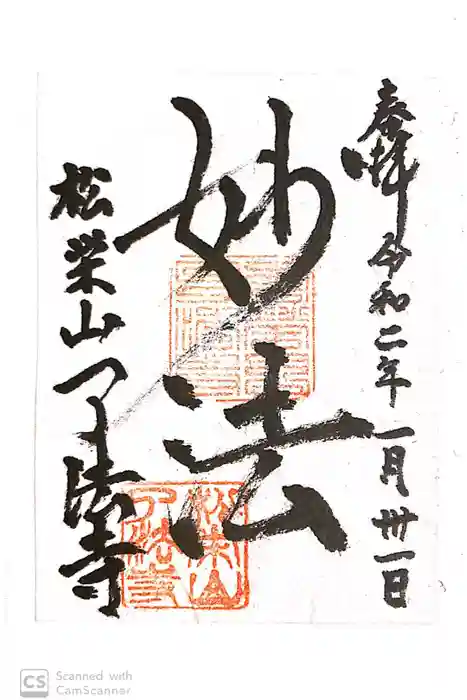 奉拝 令和二年 一月 卅一日
妙法
松栄山 了法寺
松栄山
了法寺
CS Scanned with
CamScanner